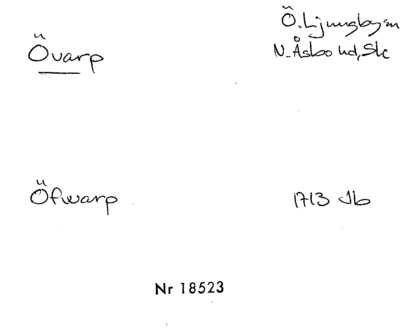 Ö. Ljungby sn
Övarp
N. Åsbo hd, Sk
Öfwarp
1713 Jb
Nr 18523